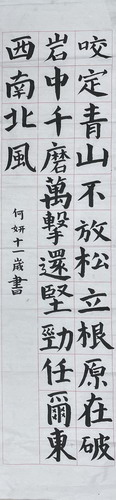 咬定青山不放松立根原在破
岩中千磨萬擊還堅勁任爾東
西南北風
何妍十一歲書